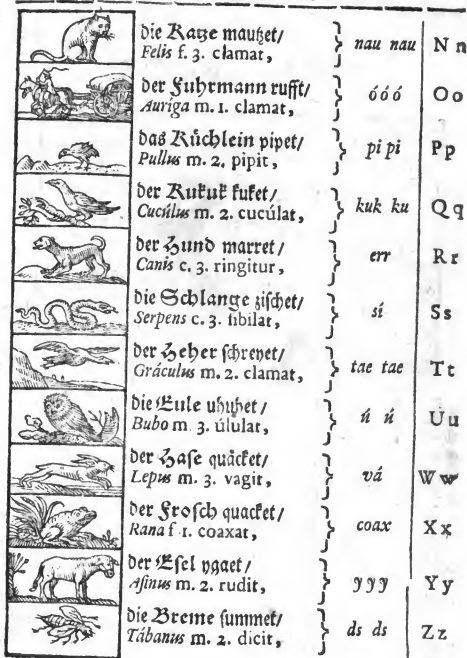 die Katze mautzet/
Felis f. 3. clamat, } nau nau N n
der Fuhrmann rufft/
Auriga m. 1. clamat, } óóó O o
das Küchlein pipet/
Pullus m. 2. pipit, } pi pi P p
der Kukuk kuket/
Cucúlus m. 2. cucúlat, } kuk ku Q q
der Hund marret/
Canis c. 3. ringitur, } err R r
die Schlange zischet/
Serpens c. 3. sibilat, } sí S s
der Heher schreyet/
Gráculus m. 2. clamat, } tae tae T t
die Eule uhuhet/
Bubo m. 3. úlulat, } ú ú U u
der Hase quäcket/
Lepus m. 3. vagit, } vá W w
der Frosch quacket/
Rana f. 1. coaxat, } coax X x
der Esel ygaet/
Asinus m. 2. rudit, } y y y Y y
die Breme summet/
Tábanus m. 2. dicit, } ds ds Z z